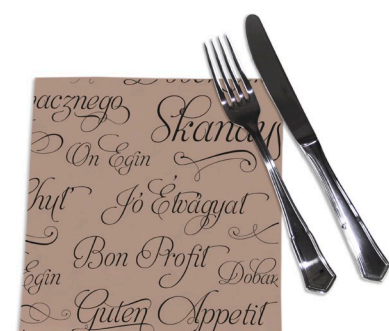 acznego
Skanaus
On Egin
Jó Étvágyat
Bon Profit
Egin
Dobar
Guten Appetit